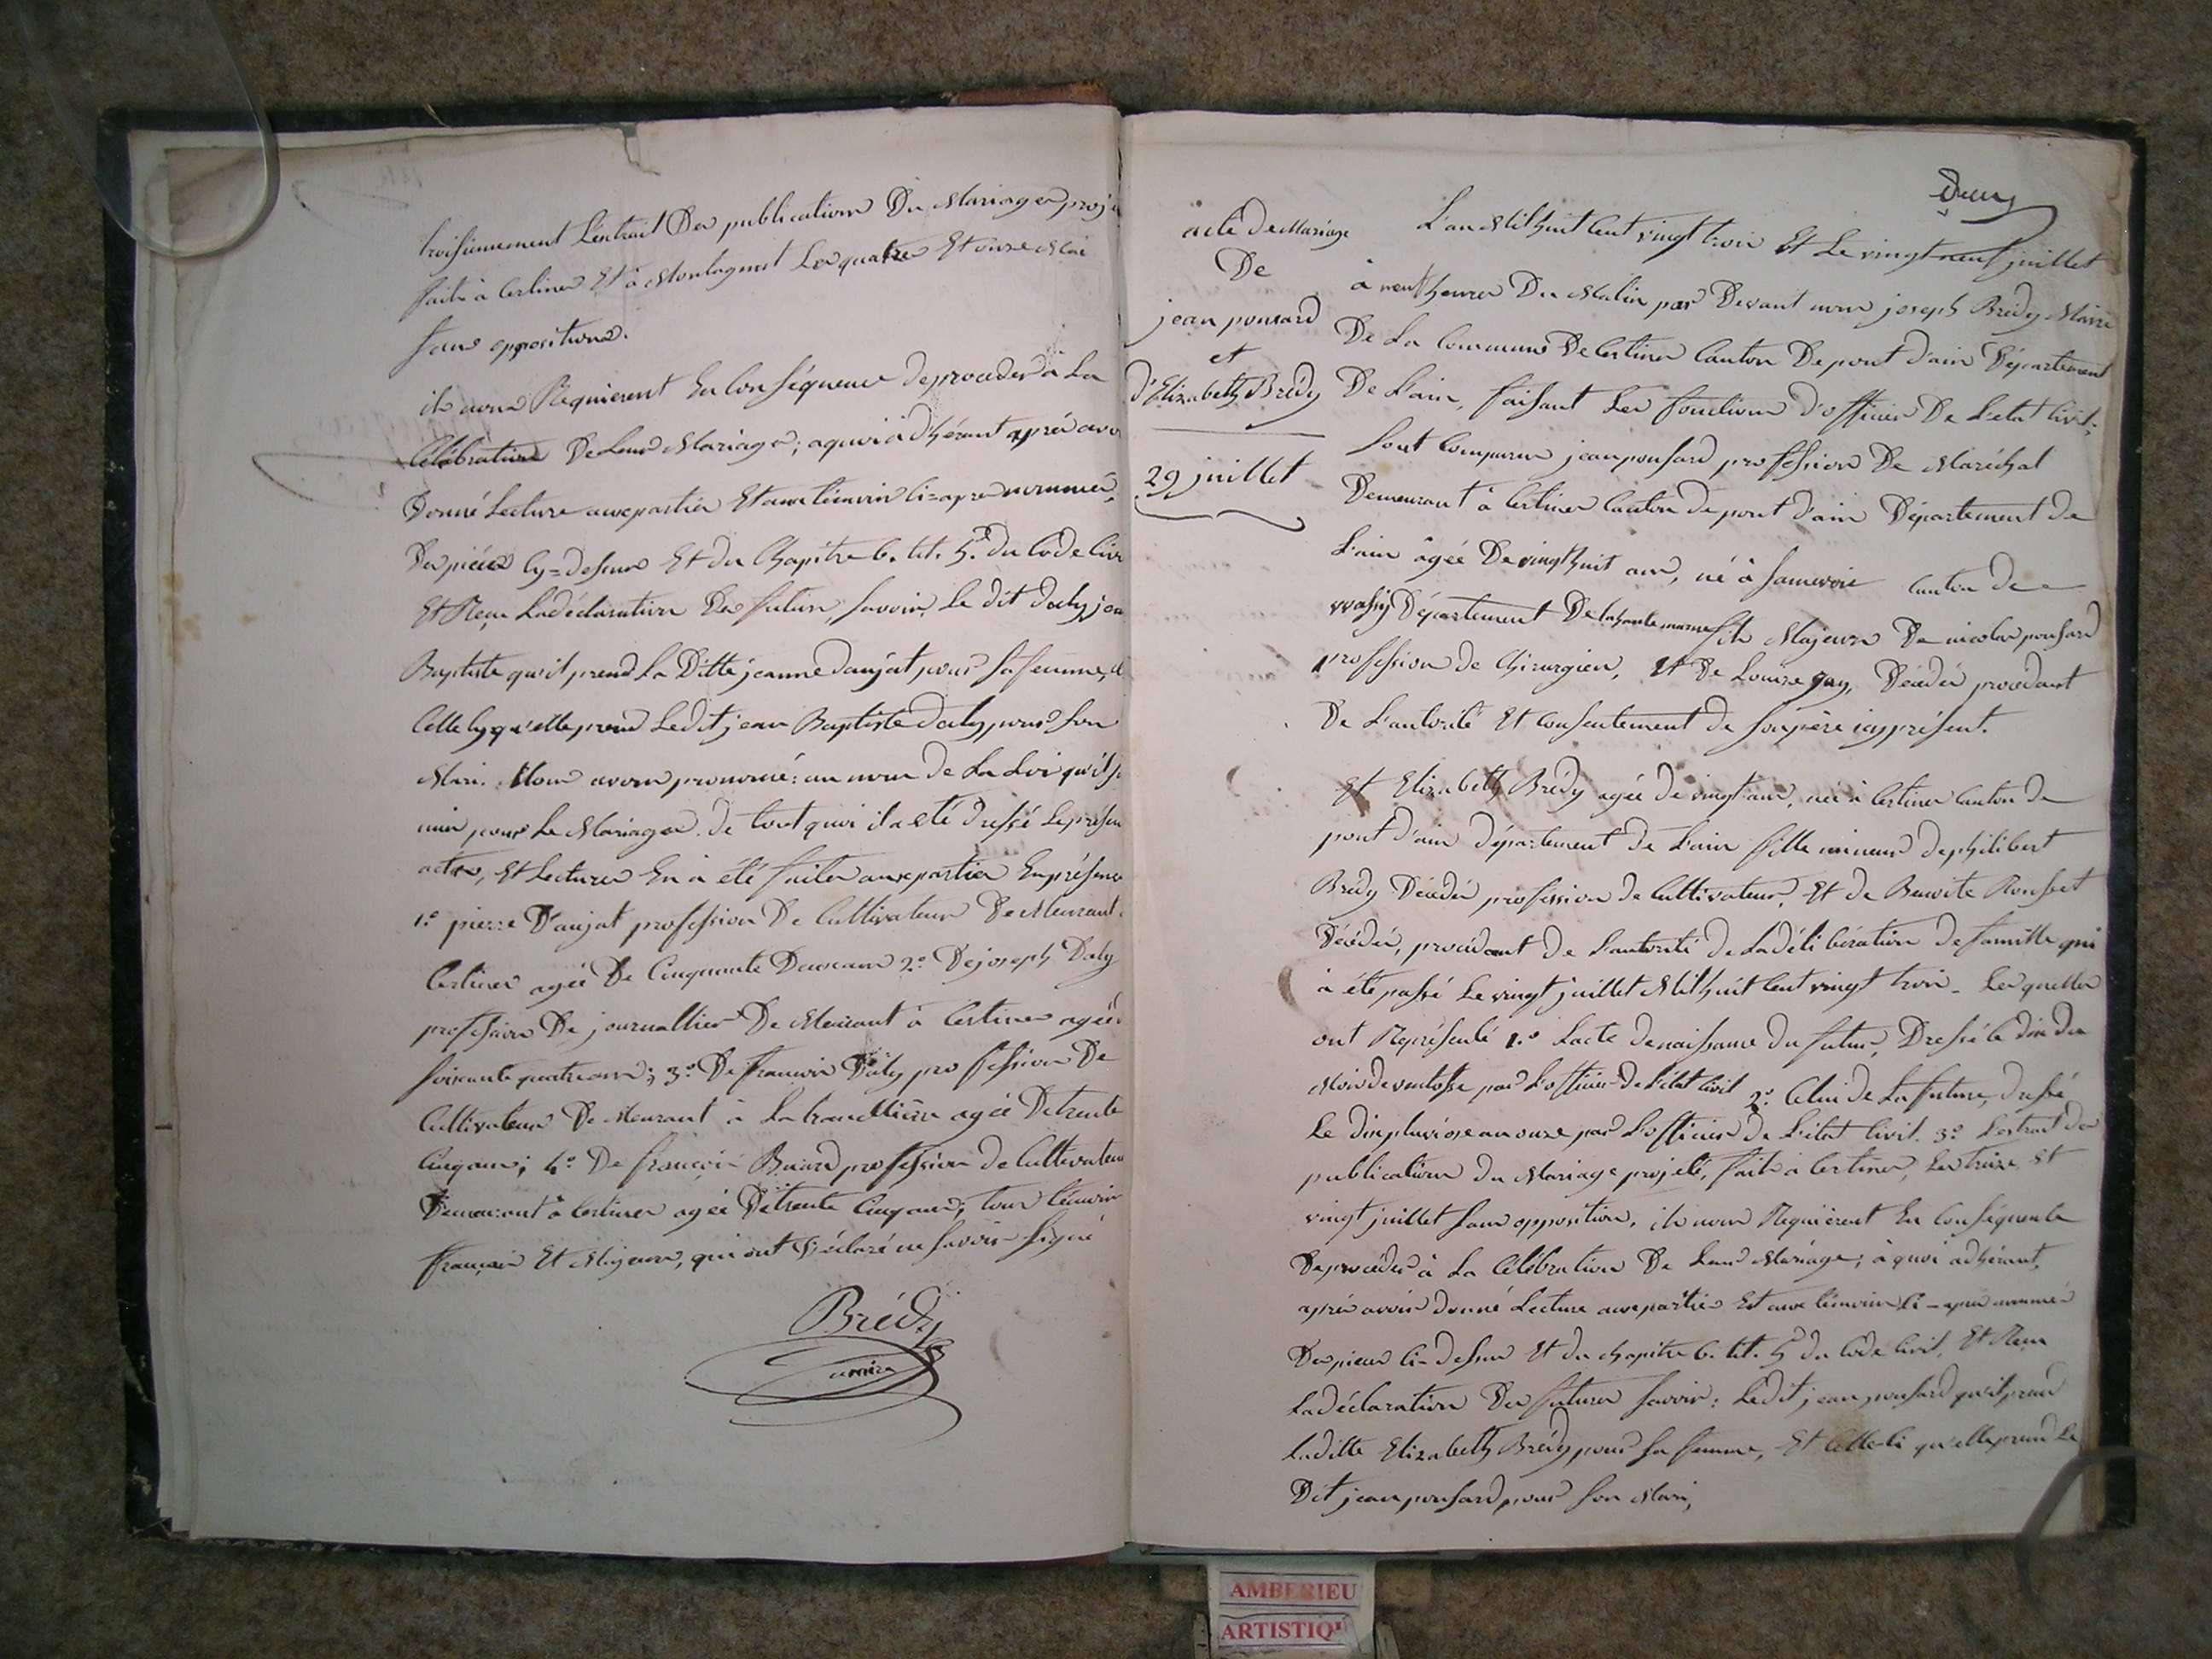 troisiemement L'extrait Des publications Du Mariage proj
faits à Certines Et à Montagnat Les quatre Et onze Mai
sans oppositions.
ils nous Requierent En Conséquence de proceder à La
Célébration De Leur Mariage; aquoi adhérant après avoir
Donné Lecture aux parties Et aux témoins ci=apres nommés,
Des pièces cy=dessus Et du Chapitre 6. tit. 5e du Code Civ
Et Reçu La déclaration Des futurs, savoir, Le dit Daly jean
Baptiste qu'il prend La Ditte jeanne Danjat pour sa femme, et
Celle cy qu'elle prend Ledit jean Baptiste Daly pour son
Mari. Nous avons prononcé: au nom de La Loi qu'ils s
unis pour Le Mariage. de tout quoi il a eté dressé Le présen
acte, Et Lecture En à été faite aux parties En présence
1.o pierre Danjat profession De Cultivateur De Meurant
Certines agée De Cinquante Deux ans 2.o De joseph Daly
profession De journallier De Meurant à Certines agée
soixante quatre ans; 3.o De françois Daly profession De
Cultivateur De Meurant à La agée De trente
Cinq ans; 4.o De françois Buiard profession de Cultivateur
Demeurant à Certines agée De trente Cinq ans; tous témoins
français Et Majeurs, qui ont Déclaré ne savoir signé
Brédy
maire
Deux
acte De Mariage
De
jean ponsard
et
d'Elizabeth Brédy
29 juillet
L'an Mil huit Cent vingt trois Et Le vingt neuf juillet
à neuf heures Du Matin par Devant nous joseph Brédy Maire
De La Commune De Certines Canton De pont d'ain Département
De L'ain, faisant Les fonctions D'officier De L'etat Civil;
sont Comparus jean ponsard profession De Maréchal
Demeurant à Certines Canton de pont d'ain Département de
L'ain âgée De vingt huit ans, né à Canton de
vvassy Département De La haute marne fils Majeurs De nicolas ponsard
profession de Chirurgien, Et De Louize gay, Décédés procédant
De L'autorité Et Consentement de son père icy présent.
Et Elizabeth Brédy agée de vingt ans, née à Certines Canton de
pont d'ain département de L'ain fille mineurs de philibert
Brédy Décédés profession de Cultivateur, Et de Benoite Rousset
Décédés, procédant de L'autorité de La déliberation de famille qui
à été passé Le vingt juillet Mil huit Cent vingt trois. Les quelles
ont Représenté 1.o L'acte de naissance du futur, Dressé le dix du
Mois de ventosse par L'officier de L'état Civil 2.o Celui de La future, dressé
Le dix pluviose an onze par L'officier de L'état Civil. 3.o L'extrait des
publications du Mariage projeté, faits à Certines, Les treize Et
vingt juillet sans opposition, ils nous Requièrent En Conséquence
De procéder à La Célébration De Leur Mariage; à quoi adhérant,
après avoir donné Lecture aux parties Et aux témoins ci-après nommés
Des pieces ci-dessus Et du chapitre 6. tit. 5e du Code Civil, Et Reçu
La déclaration Des futures savoir: Ledit jean ponsard qu'il prend
Laditte Elizabeth Brédy pour sa femme, Et Celle-ci qu'elle prend Le
Dit jean ponsard pour son Mari,
AMBERIEU
ARTISTIQ